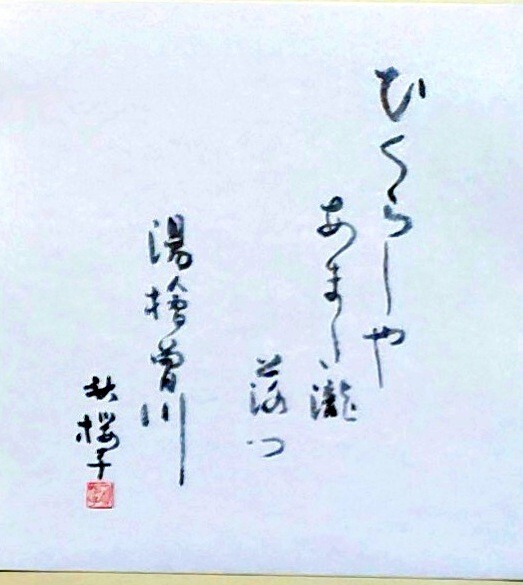 ひくらしや
あまた瀧
落つ
湯檜曽川
秋櫻子